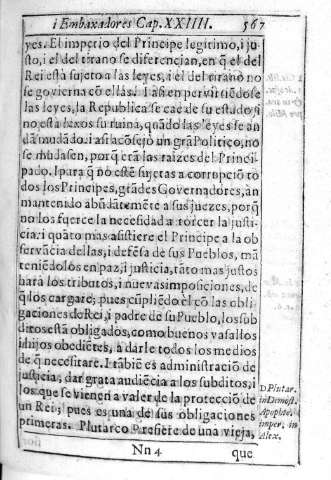 i Embaxadores Cap. XXIIII. 567
yes. El imperio del Principe legitimo, i ju-
sto, i el del tirano se diferencian, en q̃ el del
Rei està sujeto a las leyes, i el del tirano no
se govierna cõ ellas. I asi en pervirtiẽdose
las leyes, la Republica se cae de su estado, i
no està lexos su ruina, quãdo las leyes se an-
dã mudãdo. i asi acõsejò un grã Politico, no
se mudasen, porq̃ erã las raizes del Princi-
pado. I para q̃ no estẽ sujetas a corrupciõ to-
dos los Principes, grãdes Governadores, an
mantenido abũdãtemẽte a sus juezes, porq̃
no los fuerce la necesidad a torcer la justi-
cia: i quãto mas asistiere el Principe a la ob
servãcia dellas, i defẽsa de sus Pueblos, mã
teniẽdolos en paz, i justicia, tãto mas justos
harà los tributos, i nuevas imposiciones, de
q̃ los cargare; pues cũpliẽdo el cõ las obli-
gaciones de Rei, i padre de su Pueblo, los sub
ditos està obligados, como buenos vasallos
i hijos obediẽtes, a darle todos los medios
de q̃ necesitare. I tãbiẽ es administraciõ de
justicia, dar grata audiẽcia a los subditos, i
los que se vienen a valer de la protecciõ de
un Rei; pues es una de sus obligaciones
primeras. Plutarco refiere de una vieja,
D. Plutar.
in Demost.
Apophte.
imper. in
Alex.
Nn 4 que